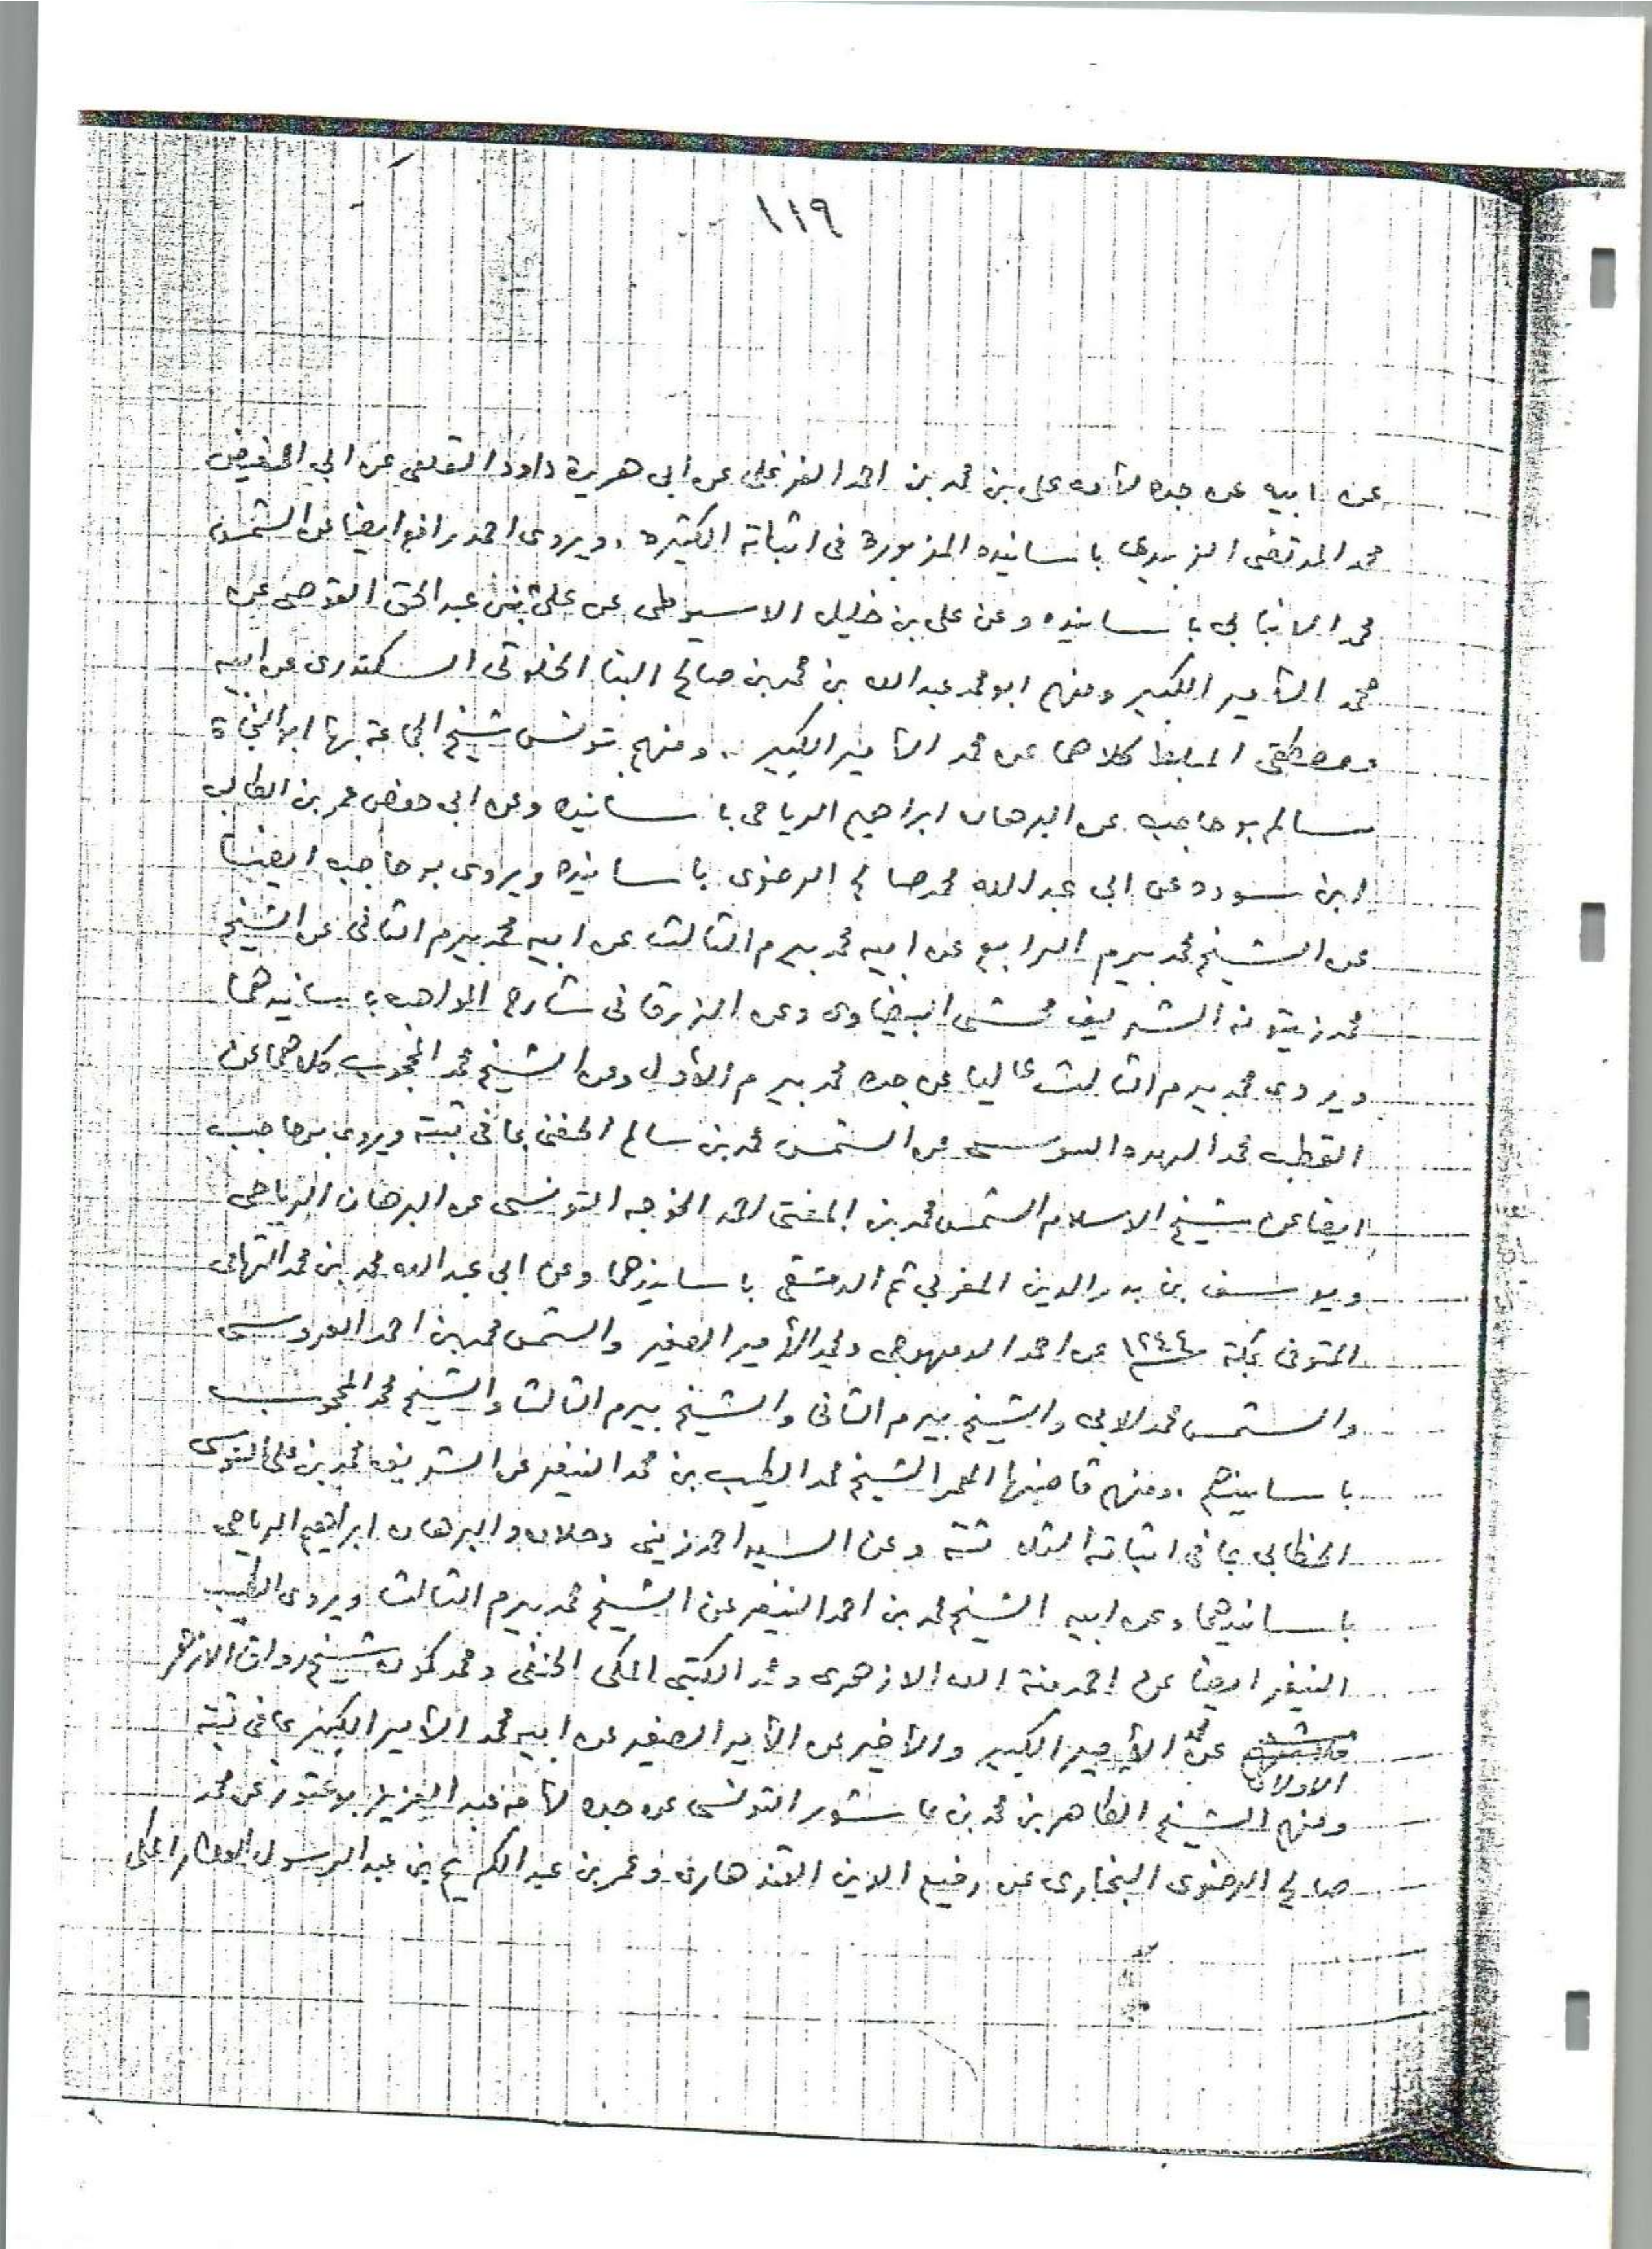 ١١٩
عن ابيه عن جده لأمه على بن محمد بن احمد الفرغلى عن ابى هريرة داود القلعى عن ابي الفيض
محمد المرتضى الزبيدى باسانيده المزبورة فى اثباته الكثيرة . ويروى احمد رافع ايضا عن الشمس
محمد الانبابي باسانيده وعن على بن خليل الاسيوطى عن على بن عبد الحق القوصى عن
محمد الأمير الكبير ومنهم ابو محمد عبد الله بن محمد بن صالح البنا الخلوتى السكندرى عن ابيه
ومصطفى المبلط كلاهما عن محمد الأمير الكبير .. ومنهم بتونس شيخ الجماعة بها ابو النجاة
سالم بوحاجب عن البرهان ابراهيم الرياحى باسانيده وعن ابى حفص عمر بن الطالب
ابن سوده عن ابى عبد الله محمد صالح الرضوى باسانيده ويروى بوحاجب ايضا
عن الشيخ محمد بيرم الرابع عن ابيه محمد بيرم الثالث عن ابيه محمد بيرم الثانى عن الشيخ
محمد زيتونه الشريف محشى البيضاوى وعن الزرقانى شارح المواهب باسانيدهما
ويروى محمد بيرم الثالث عاليا عن جده محمد بيرم الأول وعن الشيخ محمد المحجوب كلاهما عن
القطب محمد السوسى عن الشمس محمد بن سالم الحفنى بما فى ثبته ويروى بوحاجب
ايضا عن شيخ الاسلام الشمس محمد بن المفتى احمد الخوجه التونسى عن البرهان الرياحى
ويوسف بن بدر الدين المغربي ثم الدمشقى باسانيدهما وعن ابى عبد الله محمد بن محمد التهامى
المتوفى بمكة ١٢٤٤ عن احمد الدمهوجى ومحمد الأمير الصغير والشمس محمد بن احمد العروسى
والشمس محمد الابى والشيخ بيرم الثانى والشيخ بيرم الثالث والشيخ محمد المحجوب
باسانيدهم . ومنهم قاضيها المعمر الشيخ محمد الطيب بن محمد النيفر عن الشريف محمد بن على السنوسى
الخطابي بما فى اثباته الثلاثة وعن السيد احمد زينى دحلان والبرهان ابراهيم الرياحى
باسانيدهما وعن ابيه الشيخ محمد بن احمد النيفر عن الشيخ محمد بيرم الثالث ويروى الطيب
النيفر ايضا عن احمد منة الله الازهرى ومحمد الكتبى المكى الحنفى ومحمد شيخ رواق الازهر
الاولان عن محمد الأمير الكبير والأخير عن الأمير الصغير عن ابيه محمد الأمير الكبير بما فى ثبته
ومنهم الشيخ الطاهر بن محمد بن عاشور التونسى عن جده لأمه عبد العزيز بوعتور عن محمد
صالح الرضوى البخارى عن رفيع الدين القندهارى وعمر بن عبد الكريم بن عبد الرسول العطار المكى